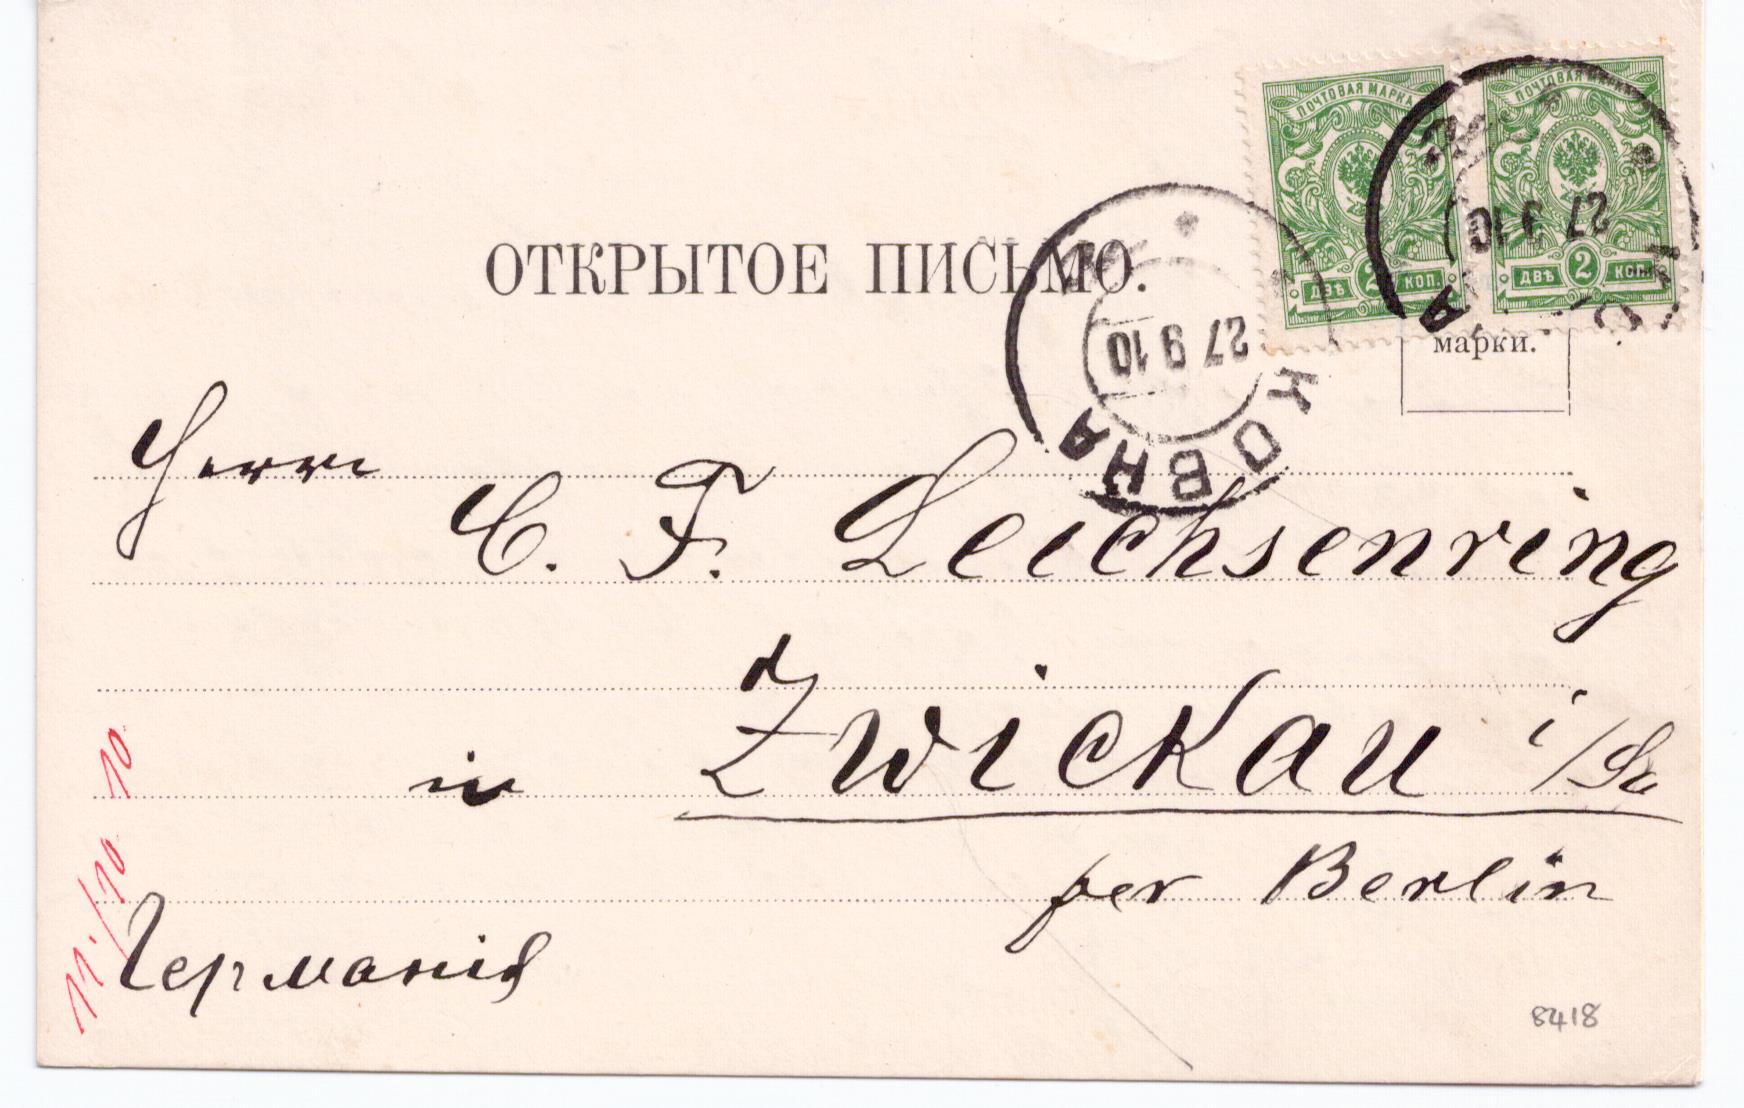 ПОЧТОВАЯ МАРКА ПОЧТОВАЯ МАРКА
ДВѢ 2 КОП. ДВѢ 2 КОП.
27 9 10
ОТКРЫТОЕ ПИСЬМО.
КОВНА
27 9 10
марки.
Herrn
C. F. Leichsenring
in Zwickau i/Sa
per Berlin
Германія
11./10 10
8418